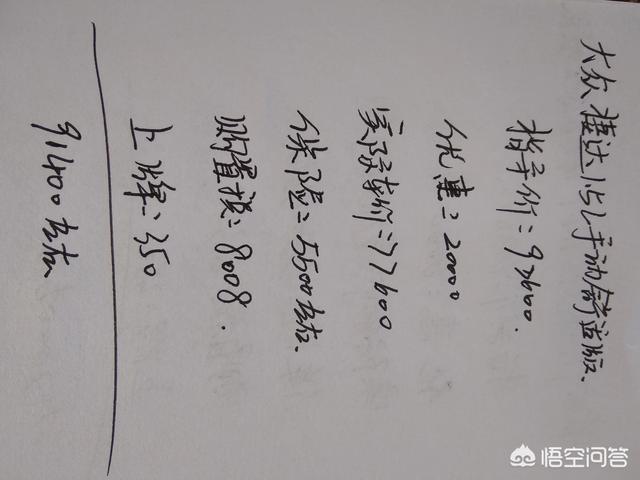 大众捷达1.5L手动舒适版、
指导价：97600.
优惠：20000
实际车价：77600
保险：5500左右、
购置税：8008.
上牌：350
91400左右、
悟空问答